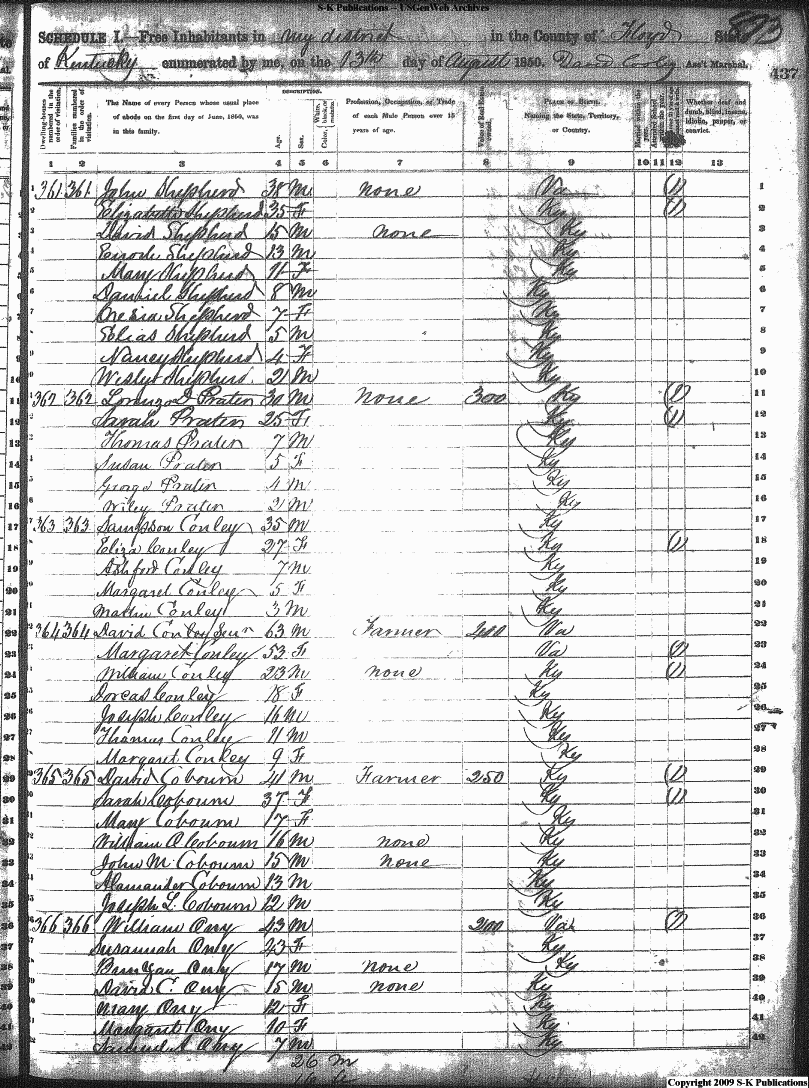 S-K Publications -- USGenWeb Archives
893
SCHEDULE I.—Free Inhabitants in My district in the County of Floyd State
of Kentucky enumerated by me, on the 13th day of August 1850. David Cooley Ass't Marshal.
437
Dwelling-houses numbered in the order of visitation.
Families numbered in the order of visitation.
The Name of every Person whose usual place of abode on the first day of June, 1850, was in this family.
DESCRIPTION.
Age.
Sex.
Color,
Profession, Occupation, or Trade of each Male Person over 15 years of age.
Value of Real Estate owned.
PLACE OF BIRTH. Naming the State, Territory, or Country.
Married within the year.
Whether deaf and dumb, blind, insane, idiotic, pauper, or convict.
1 2 3 4 5 6 7 8 9 10 11 12 13
1 361 361 John Shepherd 38 M none Va (1) 1
2 Elizabeth Shepherd 35 F Ky (1) 2
3 David Shepherd 15 M none Ky 3
4 Shepherd 13 M Ky 4
5 Mary Shepherd 11 F Ky 5
6 Danniel Shepherd 8 M Ky 6
7 Shepherd 7 F Ky 7
8 Elias Shepherd 5 M Ky 8
9 Nancy Shepherd 4 F Ky 9
10 Wesley Shepherd 2 M Ky 10
11 362 362 Lorenzo D Prater 30 M None 300 Ky (1) 11
12 Sarah Prater 25 F Ky (1) 12
13 Thomas Prater 7 M Ky 13
14 Susan Prater 5 F Ky 14
15 George Prater 4 M Ky 15
16 Wiley Prater 2 M Ky 16
17 363 363 Sampson Conley 35 M Ky 17
18 Eliza Conley 27 F Ky (1) 18
19 Ashford Conley 7 M Ky 19
20 Margaret Conley 5 F Ky 20
21 Conley 3 M Ky 21
22 364 364 David Conley Senr 63 M Farmer 400 Va 22
23 Margaret Conley 53 F Va (1) 23
24 William Conley 23 M none Ky (1) 24
25 Dorcas Conley 18 F Ky 25
26 Joseph Conley 16 M Ky 26
27 Thomas Conley 11 M Ky 27
28 Margaret Conley 9 F Ky 28
29 365 365 David Cobourn 41 M Farmer 250 Ky (1) 29
30 Sarah Cobourn 37 F Ky (1) 30
31 Mary Cobourn 17 F Ky 31
32 William A Cobourn 16 M none Ky 32
33 John M. Cobourn 15 M none Ky 33
34 Alamander Cobourn 13 M Ky 34
35 Joseph L. Cobourn 12 M Ky 35
36 366 366 William Ony 43 M 200 Va (1) 36
37 Susannah Ony 43 F Ky 37
38 Ony 17 M none Ky 38
39 David C. Ony 15 M none Ky 39
40 Mary Ony 12 F Ky 40
41 Margaret Ony 10 F Ky 41
42 Samuel A Ony 7 M Ky 42
26 M
Copyright 2009 S-K Publications